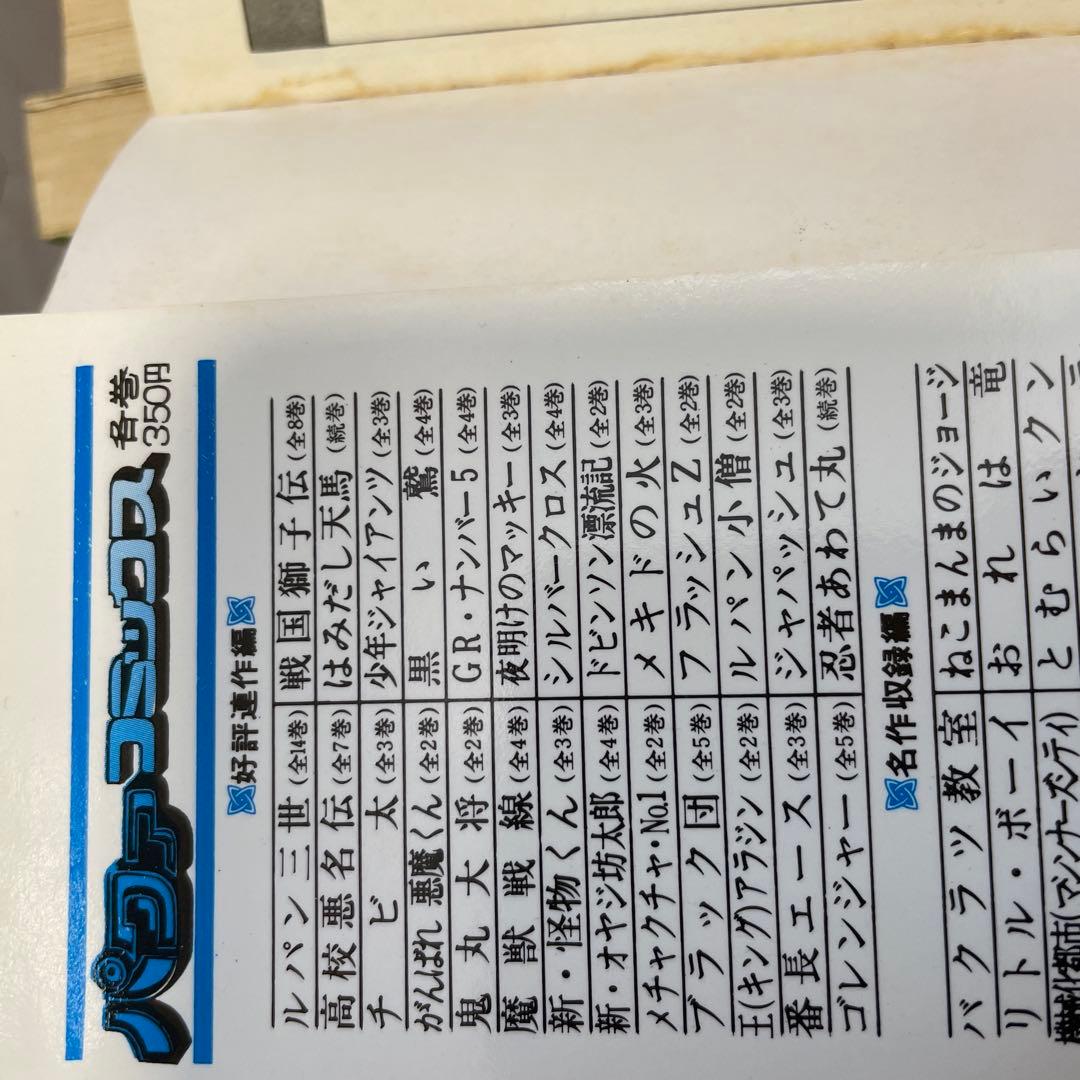 パワァコミックス
各巻
350円
好評連作編
ルパン三世(全14巻)
戦国獅子伝(全8巻)
高校悪名伝(全7巻)
はみだし天馬(続巻)
チビ太(全3巻)
少年ジャイアンツ(全3巻)
がんばれ悪魔くん(全2巻)
黒い鷲(全4巻)
鬼丸大将(全2巻)
GR・ナンバー5(全4巻)
魔獣戦線(全4巻)
夜明けのマッキー(全3巻)
新・怪物くん(全3巻)
シルバークロス(全4巻)
新・オヤジ坊太郎(全4巻)
ドビンソン漂流記(全2巻)
メチャクチャ・No.1(全2巻)
メキドの火(全3巻)
ブラック団(全5巻)
フラッシュZ(全2巻)
王(キング)アラジン(全2巻)
ルパン小僧(全2巻)
番長エース(全3巻)
ジャパッシュ(全3巻)
ゴレンジャー(全5巻)
忍者あわて丸(続巻)
名作収録編
バクラツ教室
ねこまんまのジョージ
リトル・ボーイ
おれは竜
とむらいクン